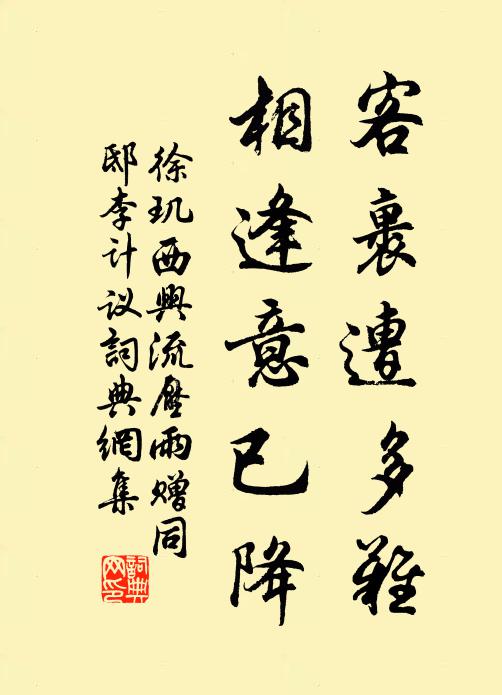 客裏遭多難
相逢意已降
徐玑西興流壓雨赠同
邸李计议詞典網集
詞典
网印